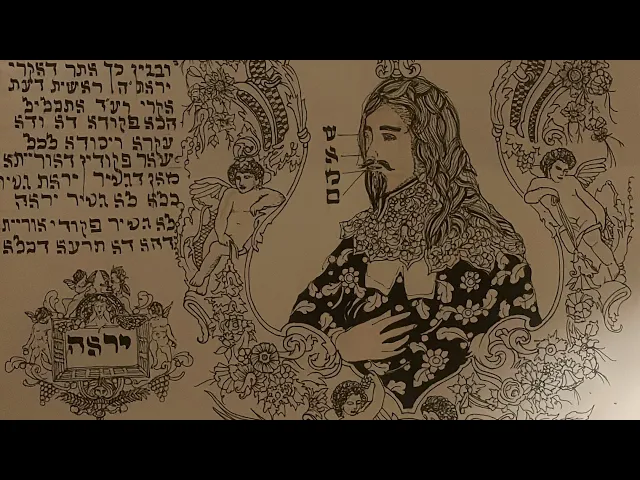 ובגין כך אתר דאקרי
יראת ה' ראשית דעת
אקרי
הכא פקודא דא ודא
עקרא ויסודא לכל
שאר פקודין דאורייתא
מאן דנטיר יראת נטיר
כלא לא נטיר יראה
לא נטיר פקודי אוריית
דהא דא תרעא דכלא
יראה